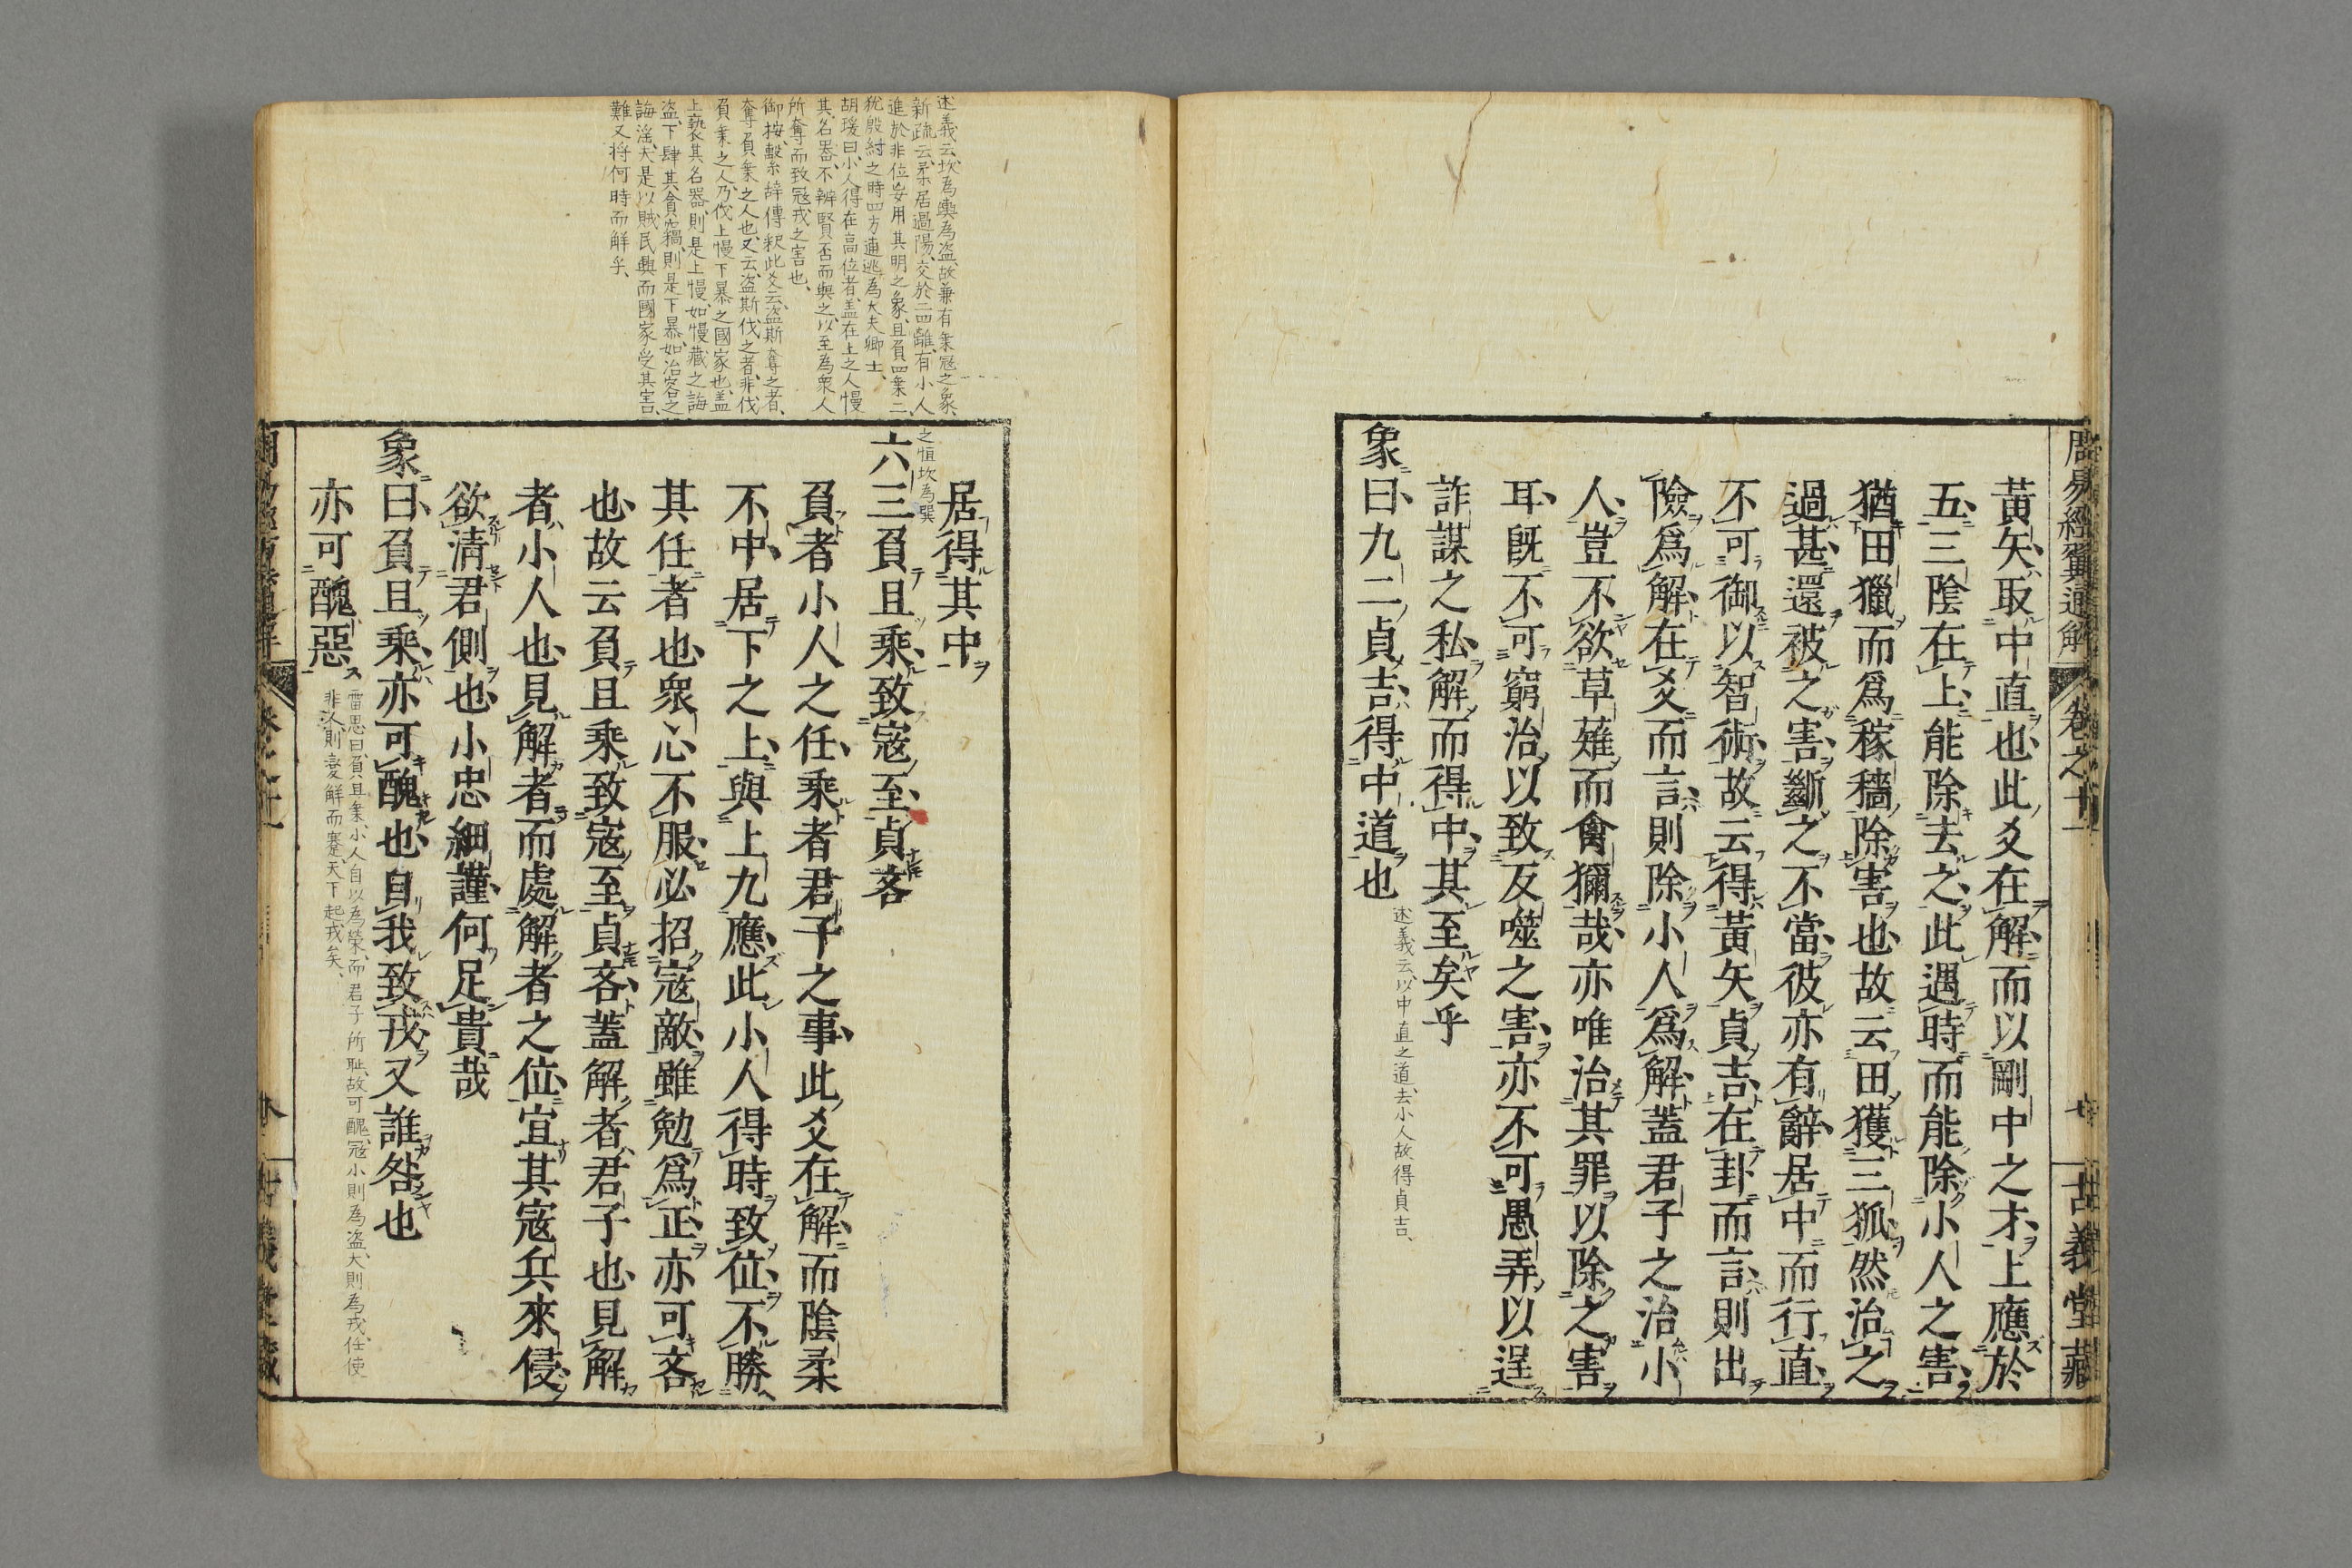 周易經翼通解
卷之十一
古義堂藏
黃矢取中直也此爻在解而以剛中之才上應於
五三陰在上能除去之此遇時而能除小人之害
猶田獵而爲稼穡除害也故云田獲三狐然治之
過甚還被之害斷之不當彼亦有辭居中而行直
不可御以智術故云得黃矢貞吉在卦而言則出
險爲解在爻而言則除小人爲解蓋君子之治小
人豈不欲草薙而禽獮哉亦唯治其罪以除之害
耳旣不可窮治以致反噬之害亦不可愚弄以逞
詐謀之私解而得中其至矣乎
象曰九二貞吉得中道也
述義云以中直之道去小人故得貞吉
述義云坎為輿為盜故兼有乗寇之象
新疏云柔居過陽交於二四離有小人
進於非位妄用其明之象且負四乗二
犹殷紂之時四方逋逃為大夫卿士
胡瑗曰小人得在高位者盖在上之人慢
其名器不辨賢否而與之以至為衆人
所奪而致冦戎之害也
御按繫辞傳釈此爻云盗斯奪之者
奪負乗之人也又云盗斯伐之者非伐
負乗之人乃伐上慢下暴之國家也盖
上褻其名器則是上慢如慢藏之誨
盗下肆其貪竊則是下暴如冶容之
誨淫夫是以賊民興而國家受其害
難又将何時而解乎
居得其中
之恒坎為巽
六三負且乘致寇至貞吝
負者小人之任乘者君子之事此爻在解而陰柔
不中居下之上與上九應此小人得時致位不勝
其任者也衆心不服必招寇敵雖勉爲正亦可吝
也故云負且乘致寇至貞吝蓋解者君子也見解
者小人也見解者而處解者之位宜其寇兵來侵
欲淸君側也小忠細謹何足貴哉
象曰負且乘亦可醜也自我致戎又誰咎也
亦可醜惡
雷思曰負且乗小人自以為榮而君子所耻故可醜冦小則為盗大則為戎任使
非人則変解而蹇天下起戎矣